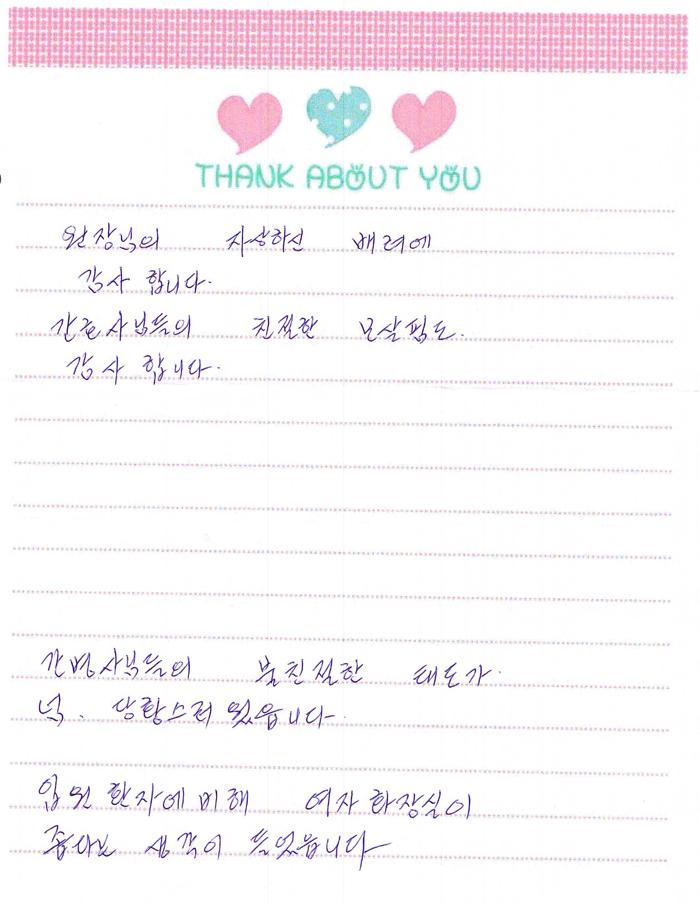 THANK ABOUT YOU
원장님의 자상하신 배려에
감사 합니다.
간호사님들의 친절한 보살핌도.
감사 합니다.
간병사님들의 불친절한 태도가.
당황스러웠읍니다.
입원 환자에 비해 여자 화장실이
좁다는 생각이 들었읍니다